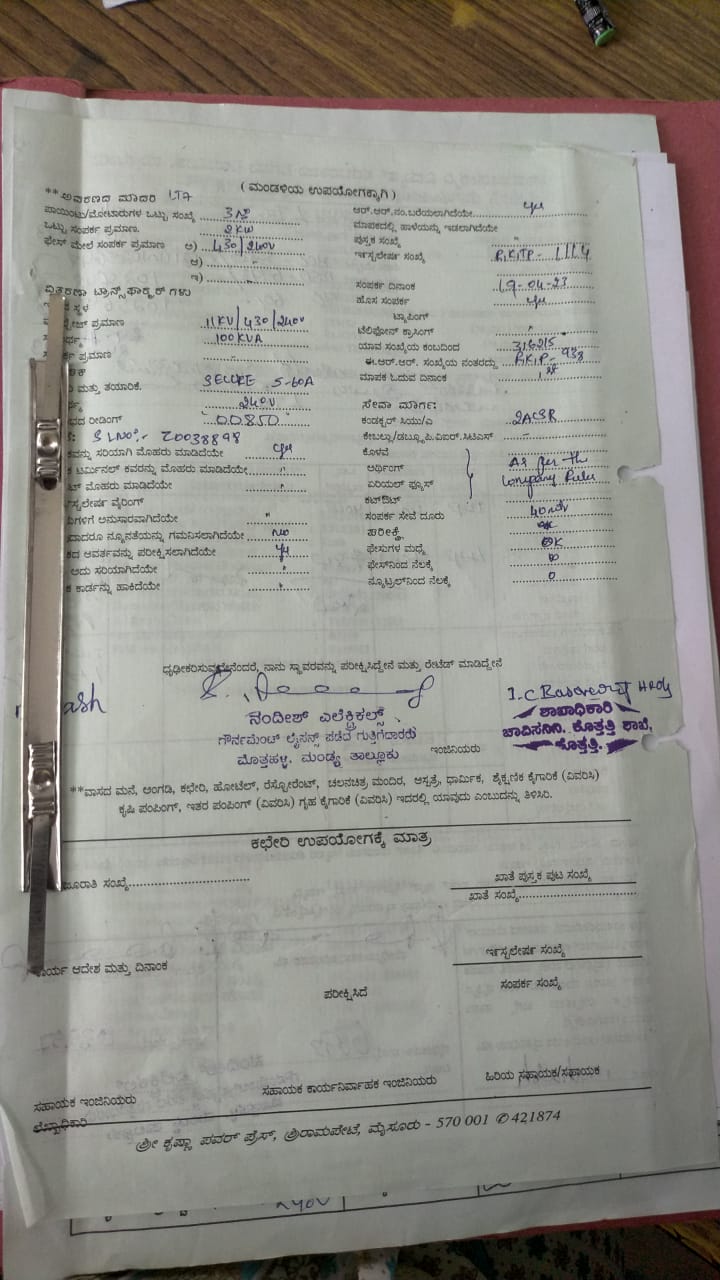 ( ಮಂಡಳಿಯ ಉಪಯೋಗಕ್ಕಾಗಿ )
**ಆವರಣದ ಮಾದರಿ LT7
ಪಾಯಿಂಟು/ಮೋಟಾರುಗಳ ಒಟ್ಟು ಸಂಖ್ಯೆ 3 No
ಒಟ್ಟು ಸಂಪರ್ಕ ಪ್ರಮಾಣ. 2KW
ಫೇಸ್ ಮೇಲೆ ಸಂಪರ್ಕ ಪ್ರಮಾಣ ಅ) 430/240V
ಆ) "
ಇ) "
ವಿತರಣಾ ಟ್ರಾನ್ಸ್‌ಫಾರ್ಮರ್ ಗಳು
ಸ್ಥಳ
ಪ್ರಮಾಣ 11KV/430/240V
100KVA
ಪ್ರಮಾಣ
ಮತ್ತು ತಯಾರಿಕೆ. SECURE 5-60A
240V
ರೀಡಿಂಗ್ 00850
SLNO:- 20038898
ಸರಿಯಾಗಿ ಮೊಹರು ಮಾಡಿದೆಯೇ yes
ಟರ್ಮಿನಲ್ ಕವರನ್ನು ಮೊಹರು ಮಾಡಿದೆಯೇ "
ಮೊಹರು ಮಾಡಿದೆಯೇ "
ವೈರಿಂಗ್
ಅನುಸಾರವಾಗಿದೆಯೇ "
ನ್ಯೂನತೆಯನ್ನು ಗಮನಿಸಲಾಗಿದೆಯೇ No
ಆವರ್ತವನ್ನು ಪರೀಕ್ಷಿಸಲಾಗಿದೆಯೇ yes
ಅದು ಸರಿಯಾಗಿದೆಯೇ "
ಕಾರ್ಡನ್ನು ಹಾಕಿದೆಯೇ "
ಆರ್.ಆರ್.ನಂ.ಬರೆಯಲಾಗಿದೆಯೇ yes
ಮಾಪಕದಲ್ಲಿ ಹಾಳೆಯನ್ನು ಇಡಲಾಗಿದೆಯೇ
ಪುಸ್ತಕ ಸಂಖ್ಯೆ
ಇನ್ಸ್ಟಲೇಷನ್ ಸಂಖ್ಯೆ
ಸಂಪರ್ಕ ದಿನಾಂಕ 19-04-23
ಹೊಸ ಸಂಪರ್ಕ yes
ಟ್ಯಾಪಿಂಗ್
ಟೆಲಿಫೋನ್ ಕ್ರಾಸಿಂಗ್ "
ಯಾವ ಸಂಖ್ಯೆಯ ಕಂಬದಿಂದ
ಈ.ಆರ್.ಆರ್. ಸಂಖ್ಯೆಯ ನಂತರದ್ದು
ಮಾಪಕ ಓದುವ ದಿನಾಂಕ 1st
ಸೇವಾ ಮಾರ್ಗ:
ಕಂಡಕ್ಟರ್ ಸಿಯು/ಎ 2ACSR
ಕೊಳವೆ
ಅರ್ಥಿಂಗ್ As per the
ಏರಿಯಲ್ ಫ್ಯೂಸ್ Company Rules
ಕಟ್‌ಔಟ್
ಸಂಪರ್ಕ ಸೇವೆ ದೂರ
ಪರೀಕ್ಷೆ
ಫೇಸುಗಳ ಮಧ್ಯೆ OK
ಫೇಸ್‌ನಿಂದ ನೆಲಕ್ಕೆ
ನ್ಯೂಟ್ರಲ್‌ನಿಂದ ನೆಲಕ್ಕೆ 0
ಧೃಢೀಕರಿಸುವುದೇನೆಂದರೆ, ನಾನು ಸ್ಥಾವರವನ್ನು ಪರೀಕ್ಷಿಸಿದ್ದೇನೆ ಮತ್ತು ರೇಟೆಡ್ ಮಾಡಿದ್ದೇನೆ
ನಂದೀಶ್ ಎಲೆಕ್ಟ್ರಿಕಲ್ಸ್
ಗೌರ್ನಮೆಂಟ್ ಲೈಸನ್ಸ್ ಪಡೆದ ಗುತ್ತಿಗೆದಾರರು
ಮೊತ್ತಹಳ್ಳಿ, ಮಂಡ್ಯ ತಾಲ್ಲೂಕು
ಇಂಜಿನಿಯರು
ಶಾಖಾಧಿಕಾರಿ
ಚಾವಿಸನಿನಿ. ಕೊತ್ತತ್ತಿ ಶಾಖೆ,
ಕೊತ್ತತ್ತಿ.
**ವಾಸದ ಮನೆ, ಅಂಗಡಿ, ಕಛೇರಿ, ಹೋಟೆಲ್, ರೆಸ್ಟೋರೆಂಟ್, ಚಲನಚಿತ್ರ ಮಂದಿರ, ಆಸ್ಪತ್ರೆ, ಧಾರ್ಮಿಕ, ಶೈಕ್ಷಣಿಕ ಕೈಗಾರಿಕೆ (ವಿವರಿಸಿ)
ಕೃಷಿ ಪಂಪಿಂಗ್, ಇತರ ಪಂಪಿಂಗ್ (ವಿವರಿಸಿ) ಗೃಹ ಕೈಗಾರಿಕೆ (ವಿವರಿಸಿ) ಇದರಲ್ಲಿ ಯಾವುದು ಎಂಬುದನ್ನು ತಿಳಿಸಿರಿ.
ಕಛೇರಿ ಉಪಯೋಗಕ್ಕೆ ಮಾತ್ರ
ಸಂಖ್ಯೆ
ಖಾತೆ ಪುಸ್ತಕ ಪುಟ ಸಂಖ್ಯೆ
ಖಾತೆ ಸಂಖ್ಯೆ
ಇನ್ಸ್ಟಲೇಷನ್ ಸಂಖ್ಯೆ
ಕಾರ್ಯ ಆದೇಶ ಮತ್ತು ದಿನಾಂಕ
ಸಂಪರ್ಕ ಸಂಖ್ಯೆ
ಪರೀಕ್ಷಿಸಿದೆ
ಸಹಾಯಕ ಇಂಜಿನಿಯರು
ಸಹಾಯಕ ಕಾರ್ಯನಿರ್ವಾಹಕ ಇಂಜಿನಿಯರು
ಹಿರಿಯ ಸಹಾಯಕ/ಸಹಾಯಕ
ಲೆಖ್ಖಾಧಿಕಾರಿ
ಶ್ರೀ ಕೃಷ್ಣಾ ಪವರ್ ಪ್ರೆಸ್, ಶ್ರೀರಾಮಪೇಟೆ, ಮೈಸೂರು - 570 001 ✆ 421874
240V